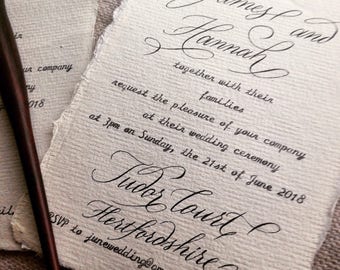 James and
Hannah
together with their
families
request the pleasure of your company
at their wedding ceremony
at 3pm on Sunday, the 21st of June 2018
Tudor Court,
Hertfordshire
RSVP to junewedding@gm
your company
ceremony
of June 2018